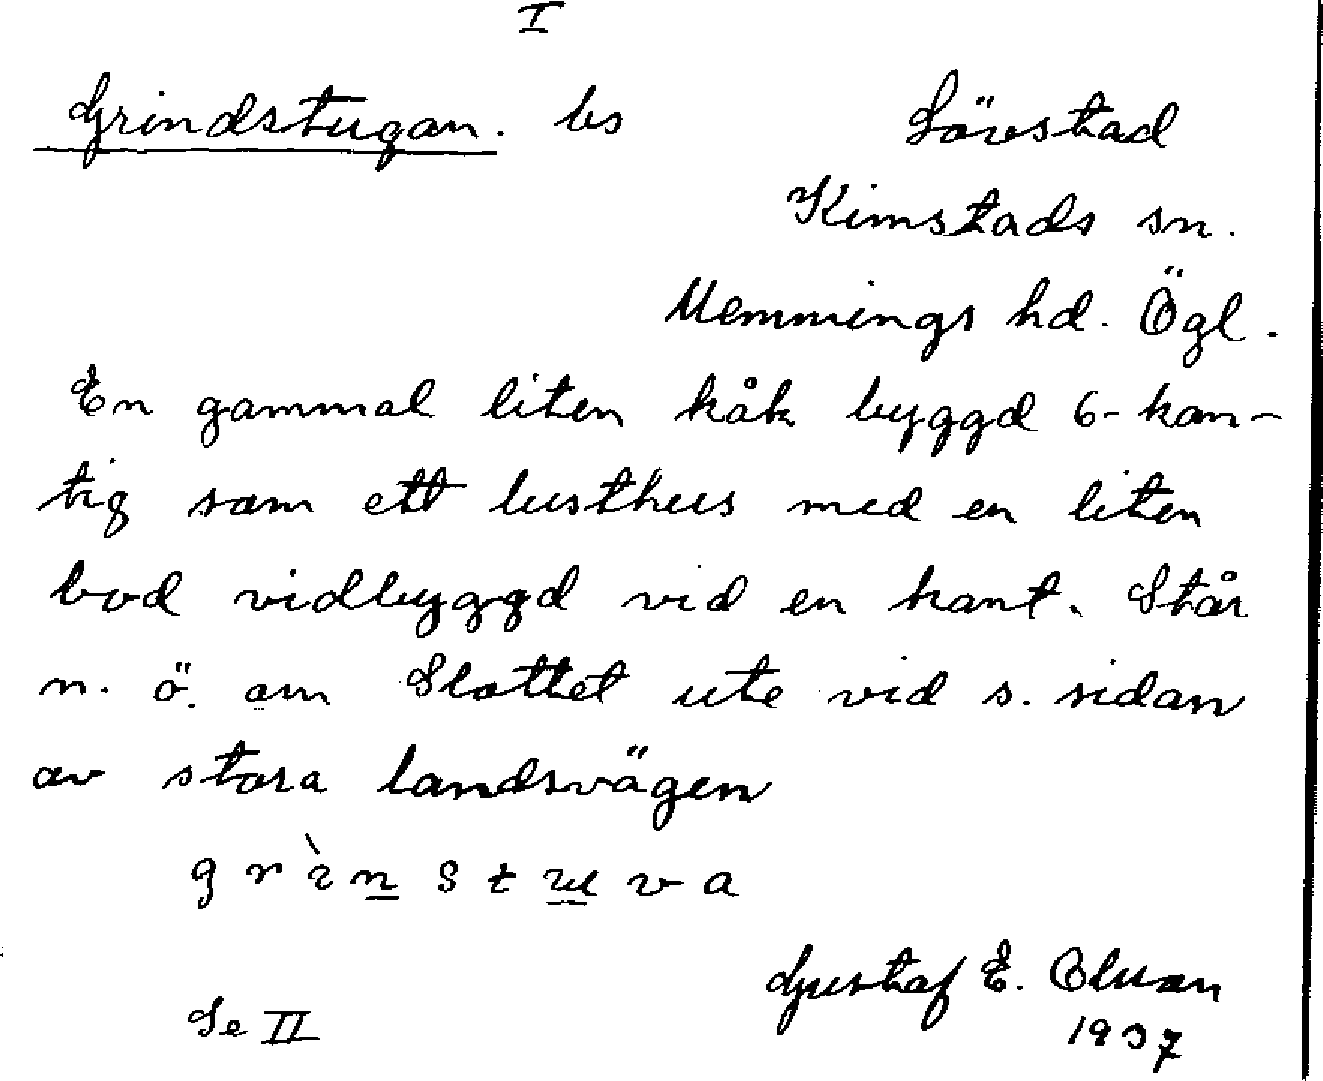 I
Grindstugan. bs Lövstad
Kimstads sn.
Memmings hd. Ögl.
En gammal liten kåk byggd 6-kan-
tig som ett lusthus med en liten
bod vidbyggd vid en kant. Står
n. ö. om Slottet ute vid s. sidan
av stora landsvägen
g r ì n s t u v a
Gustaf E. Olsson
Se II 1937